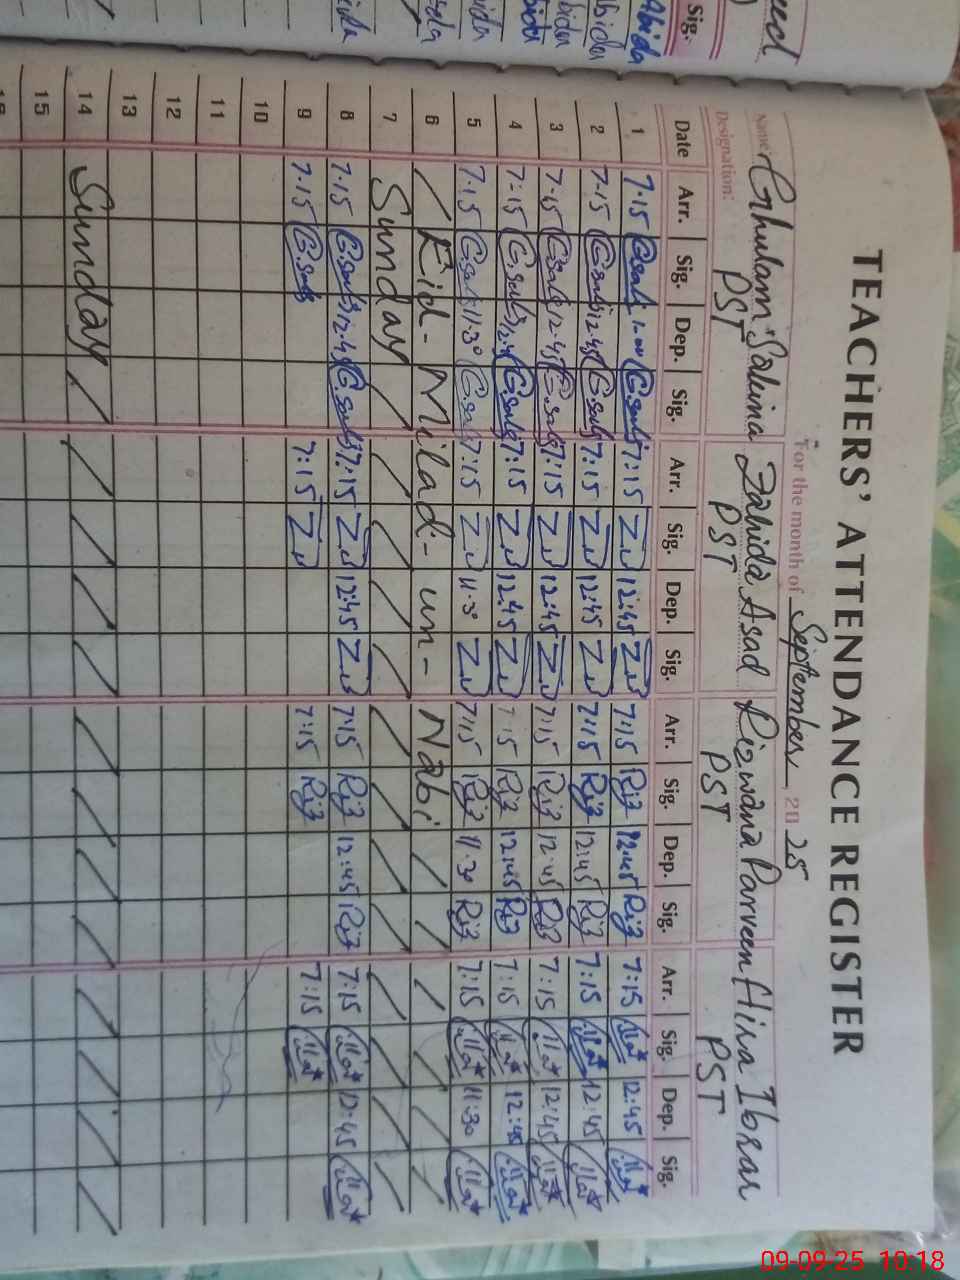 TEACHERS' ATTENDANCE REGISTER
For the month of September, 2025
Name: Ghulam Sakina Zahida Asad Rizwana Parveen Hina Ibrar
Designation: PST PST PST PST
Date Arr. Sig. Dep. Sig. Arr. Sig. Dep. Sig. Arr. Sig. Dep. Sig. Arr. Sig. Dep. Sig.
1 7.15 1.00 7:15 12:45 7:15 Riz 12:45 Riz 7:15 12:45
2 7.15 12.45 7:15 12:45 7:15 Riz 12:45 Riz 7:15 12:45
3 7.15 12.45 7:15 12:45 7:15 Riz 12:45 Riz 7:15 12:45
4 7:15 12.45 7:15 12:45 7:15 Riz 12:45 Riz 7:15 12:45
5 7.15 11.30 7:15 11.30 7:15 Riz 11.30 Riz 7:15 11:30
6 Eid - Milad - un - Nabi
7 Sunday
8 7.15 12.45 7:15 12:45 7:15 Riz 12:45 Riz 7:15 12:45
9 7.15 7:15 7:15 Riz 7:15
10
11
12
13
14 Sunday
15
Sig.
09-09-25 10:18